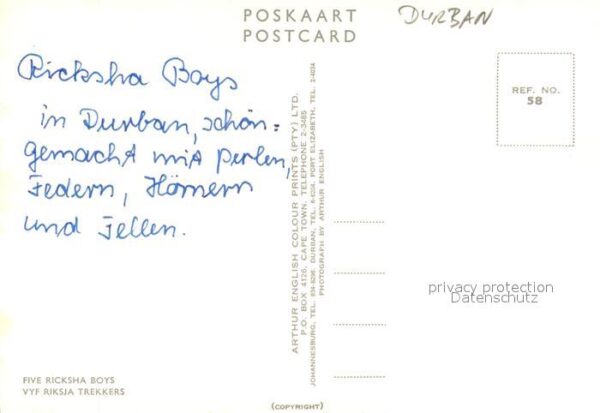 POSKAART
POSTCARD
DURBAN
Ricksha Boys
in Durban, schön=
gemacht mit Perlen,
Federn, Hörnern
und Fellen.
REF. NO.
58
ARTHUR ENGLISH COLOUR PRINTS (PTY) LTD.
P.O. BOX 4126, CAPE TOWN. TELEPHONE 2-3485
JOHANNESBURG, TEL. DURBAN, TEL. PORT ELIZABETH, TEL. 2-4034
PHOTOGRAPH BY ARTHUR ENGLISH
privacy protection
Datenschutz
FIVE RICKSHA BOYS
VYF RIKSJA TREKKERS
(COPYRIGHT)